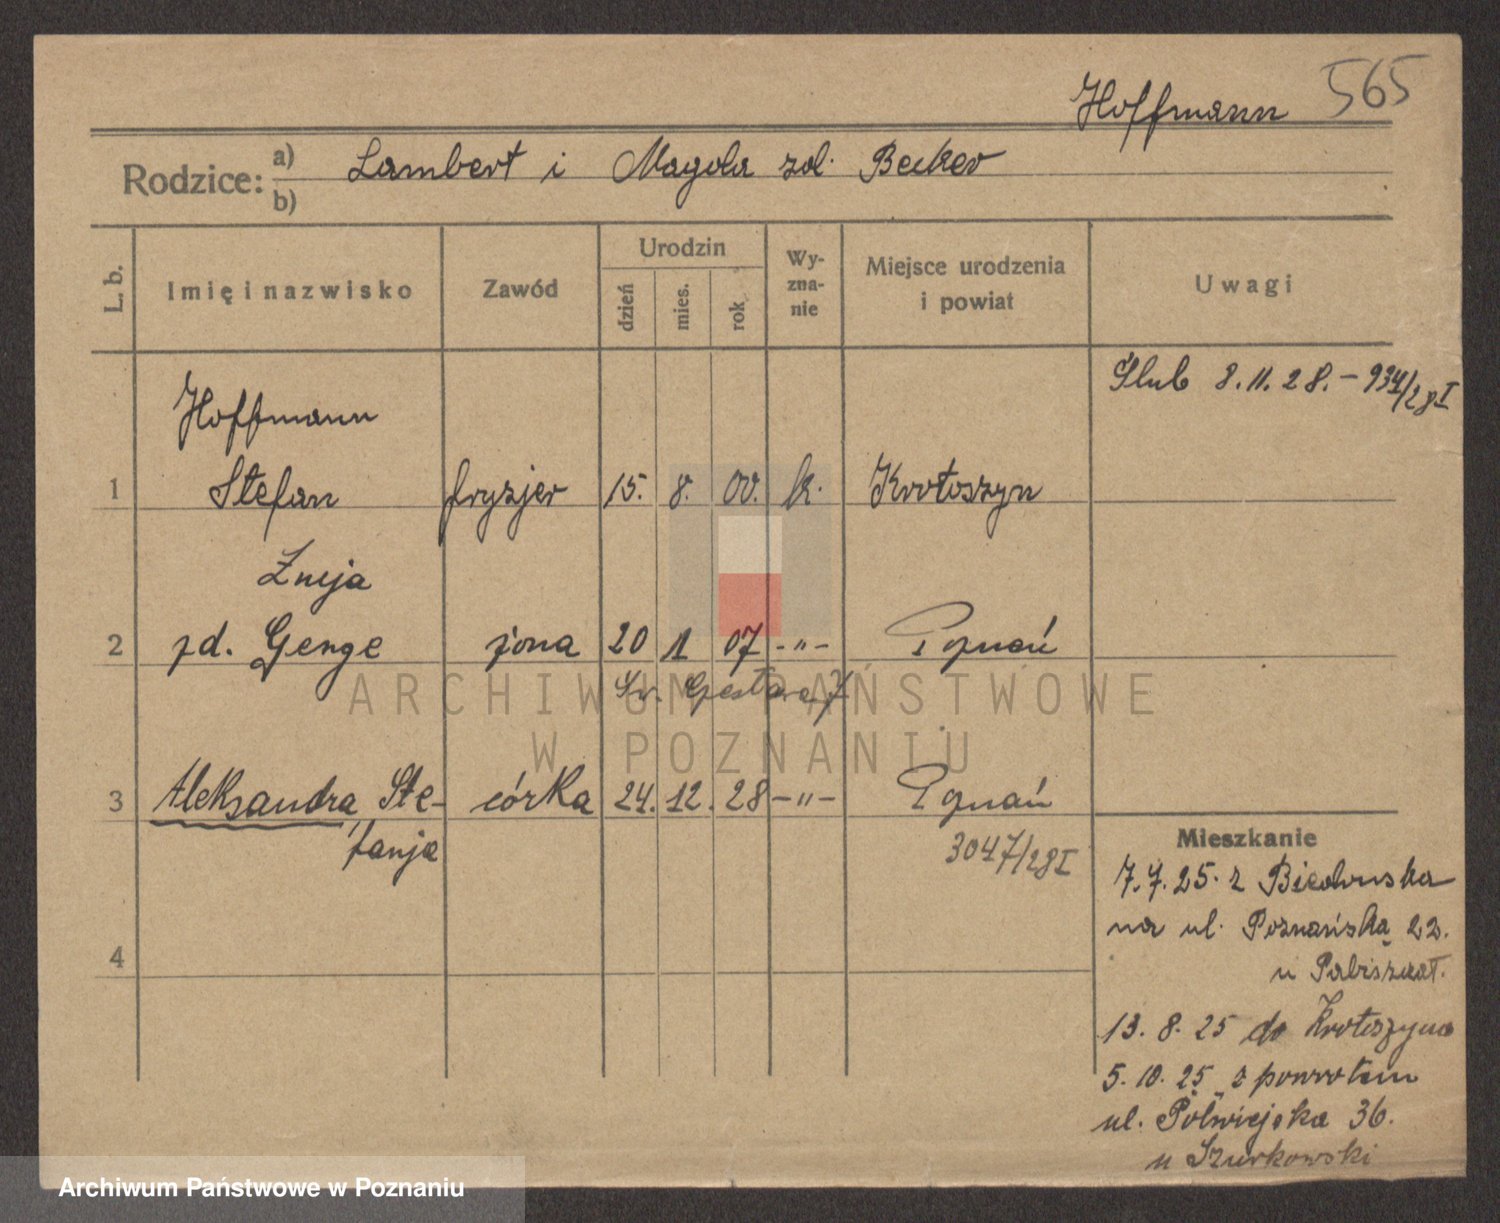 Hoffmann 565
Rodzice: a) Lambert i Magda zd. Becker
b)
L. b. Imię i nazwisko Zawód Urodzin dzień mies. rok Wyznanie Miejsce urodzenia i powiat Uwagi
Ślub 8.11.28. - 934/28 I
Hoffmann
1 Stefan fryzjer 15. 8. 00. k. Krotoszyn
Łucja
2 zd. Genge żona 20 11 07 -"- Poznań
3 Aleksandra Ste- córka 24. 12. 28 -"- Poznań
fanja 3047/28 I
4
Mieszkanie
7.7.25. z
na ul. Poznańska 22.
u
13. 8. 25 do Krotoszyna
5. 10. 25 z powrotem
ul. Półwiejska 36.
u Szurkowski
ARCHIWUM PAŃSTWOWE
W POZNANIU
Archiwum Państwowe w Poznaniu